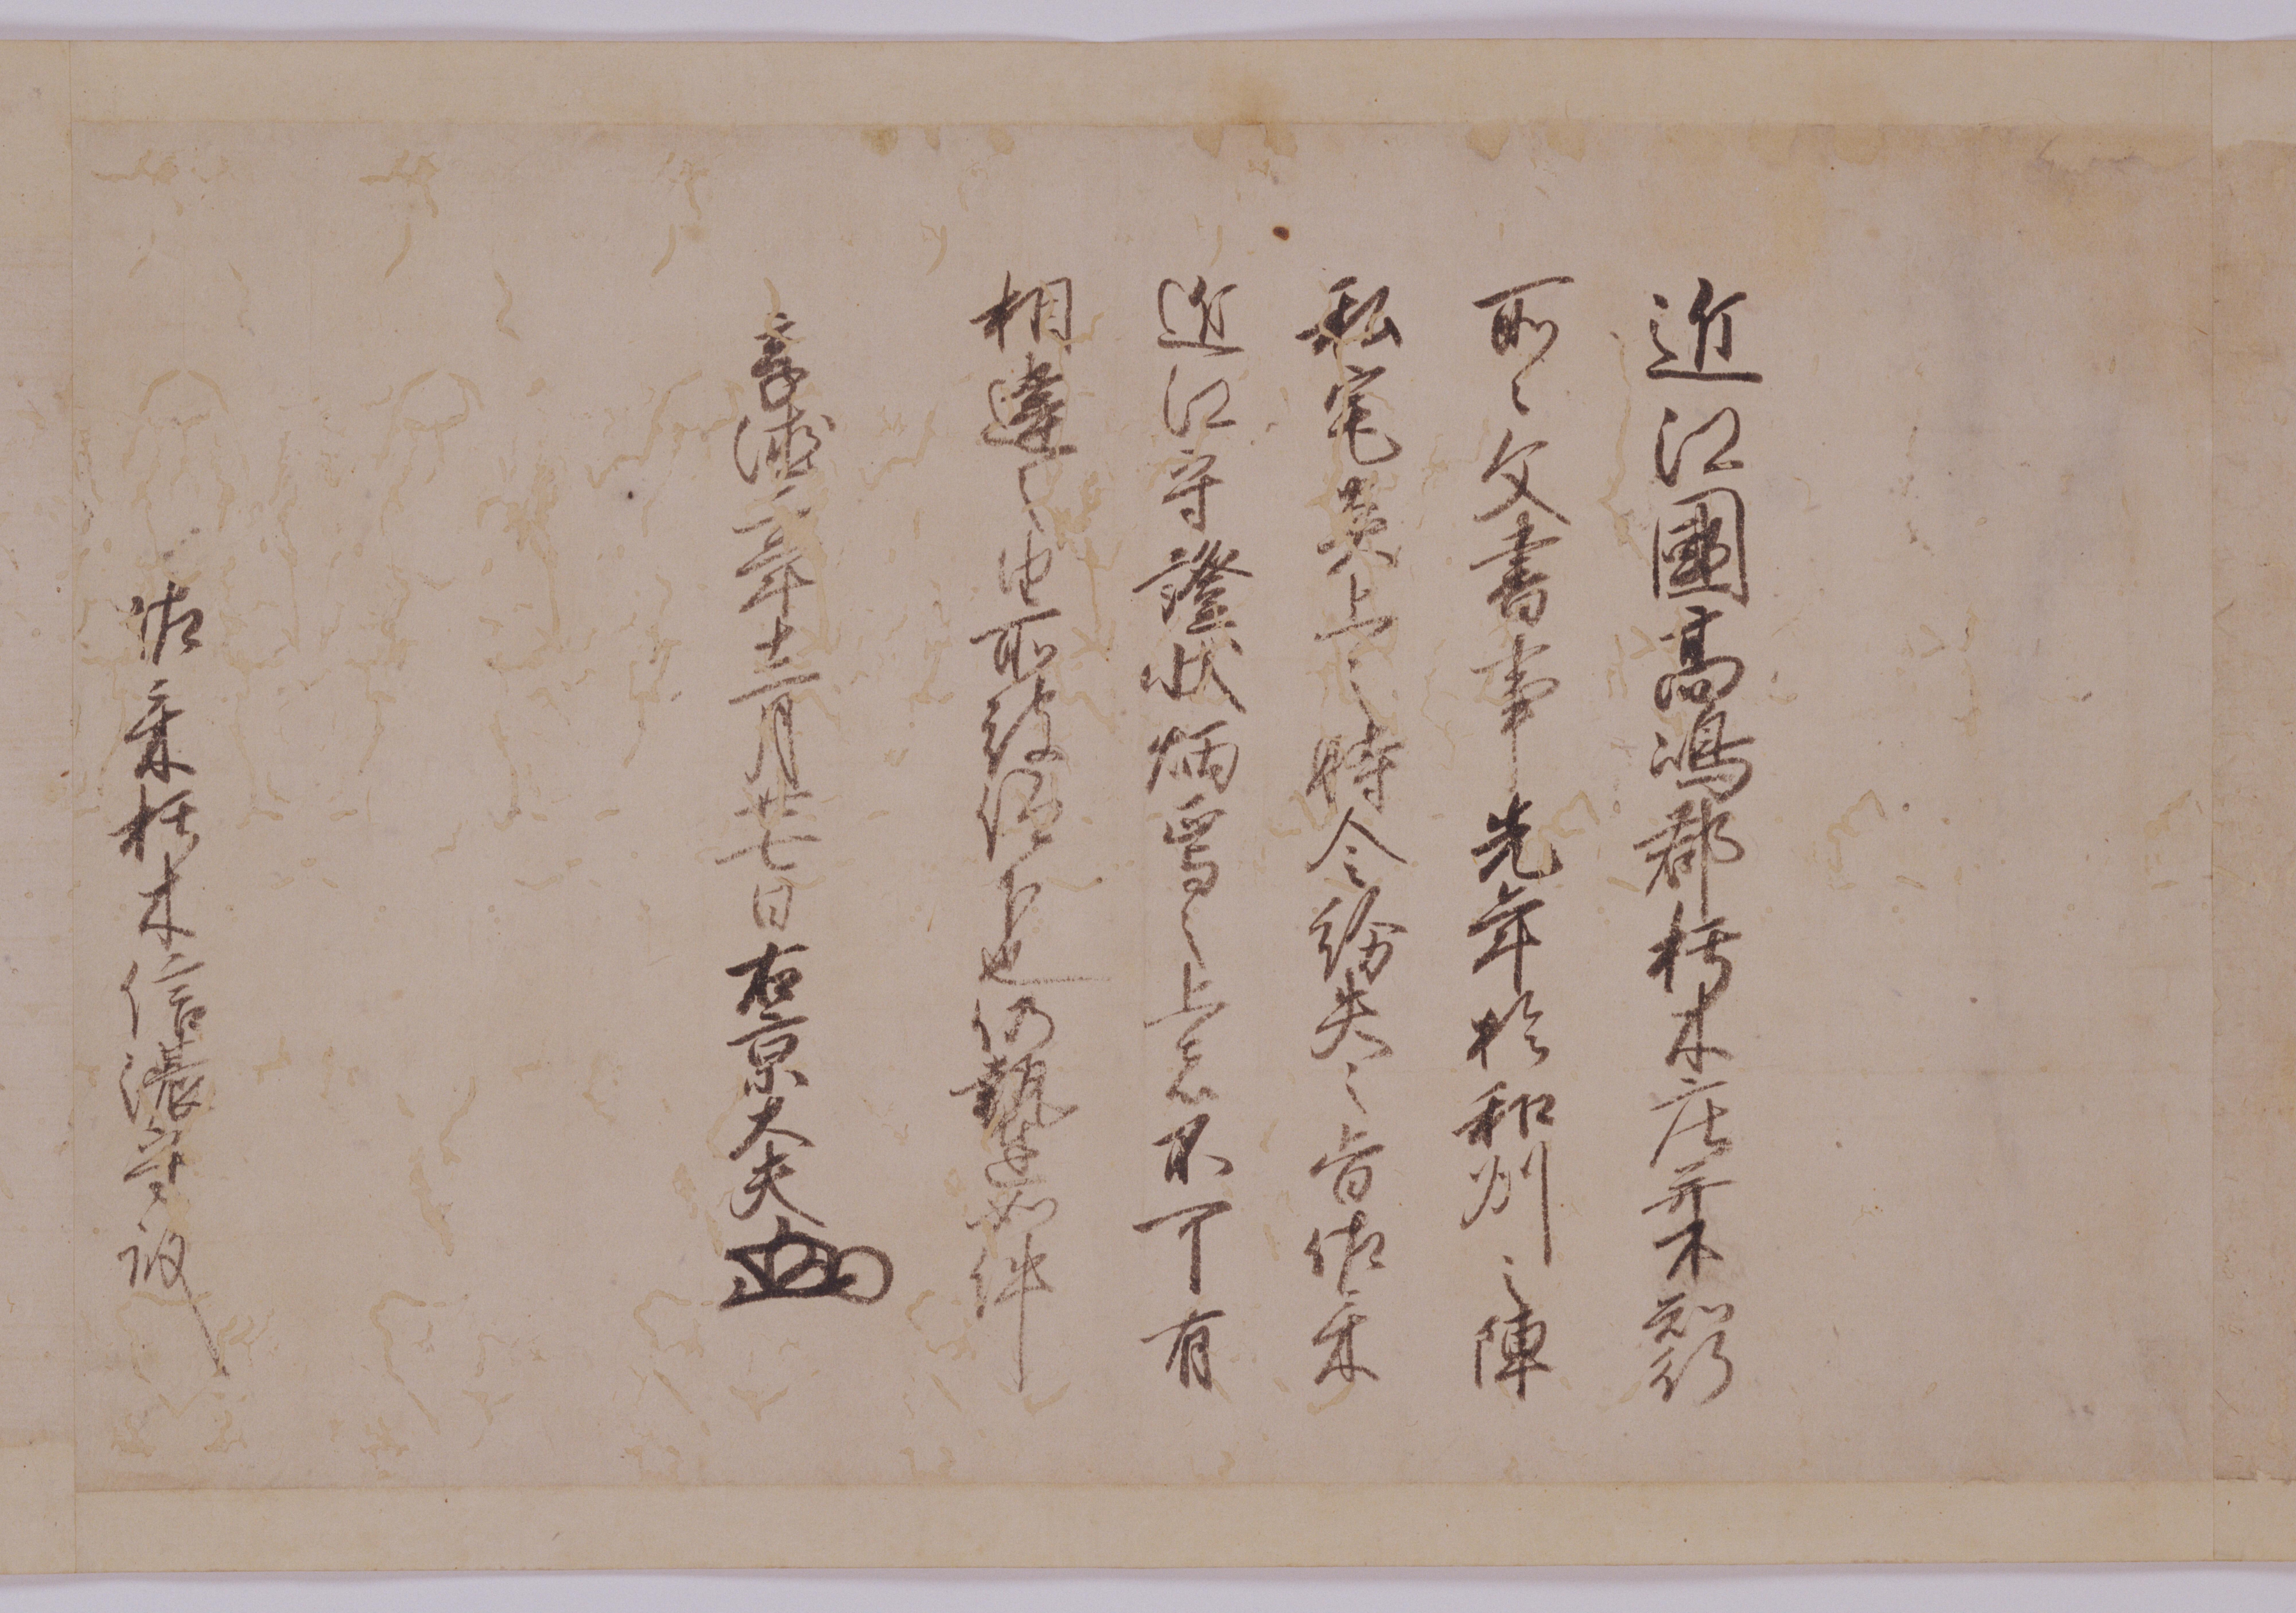 近江國髙嶋郡朽木庄并本知行
所々文書事先年於和州之陣
私宅炎上之時令紛失之旨佐々木
近江守證状炳焉之上者不可有
相違之由所被仰下也仍執達如件
享徳二年十二月廿七日右京大夫
佐々木朽木信濃守殿